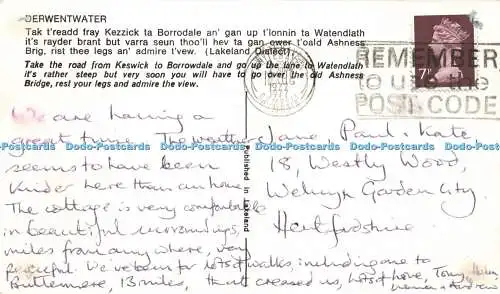 DERWENTWATER
Tak t'readd fray Kezzick ta Borrodale an' gan up t'lonnin ta Watendlath
it's rayder brant but varra seun thoo'll hev ta gan ower t'oald Ashness
Brig, rist thee legs an' admire t'vew. (Lakeland Dialect).
Take the road from Keswick to Borrowdale and go up the lane to Watendlath
it's rather steep but very soon you will have to go over the old Ashness
Bridge, rest your legs and admire the view.
REMEMBER
to use the
POST CODE
7P
We are having a
great time. The weather
seems to have been
kinder here than at home.
The cottage is very comfortable
in beautiful surroundings,
miles from anywhere, very
peaceful. We've been for lots of walks, including one to
Buttlemere, 13 miles, that creased us, lots of love, Tony
Jane Paul & Kate
18, Westly Wood,
Welwyn Garden City
Hertfordshire
Published in Lakeland
www.delcampe.net